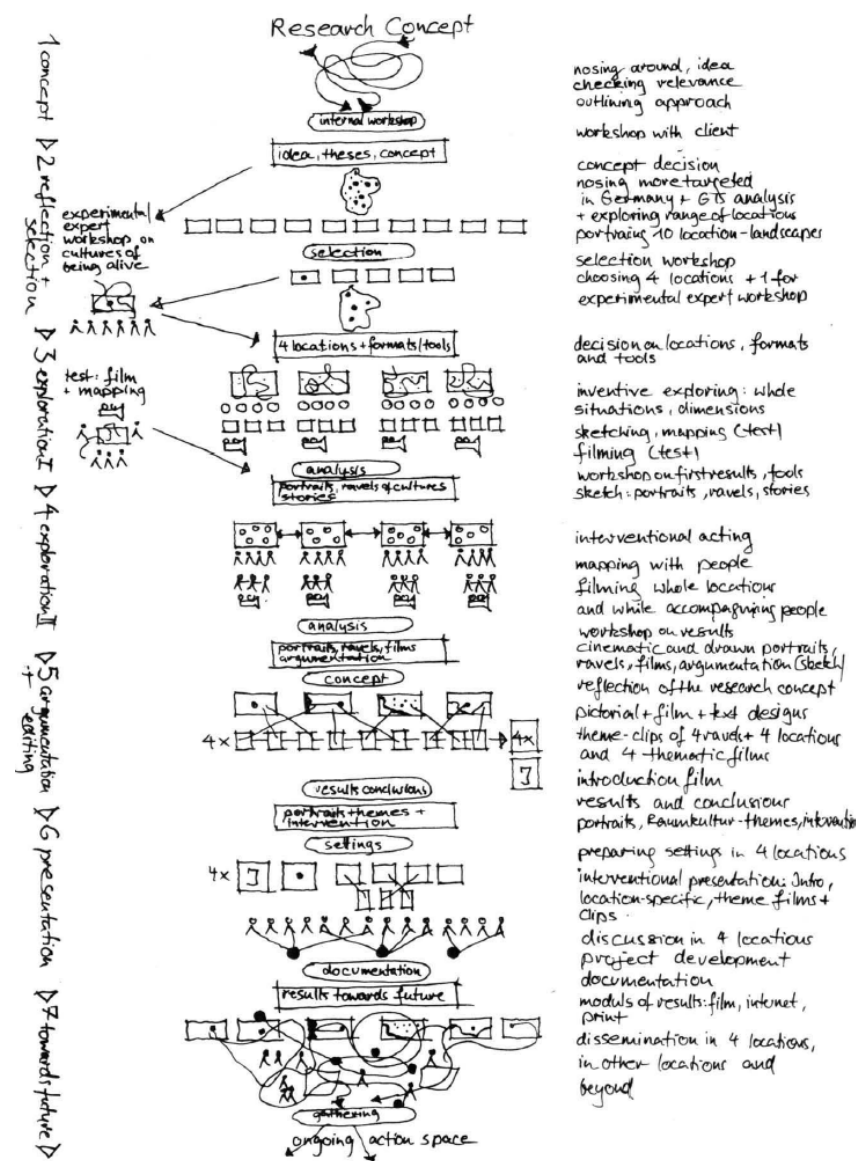 Research Concept
1 concept ▷ 2 reflection + selection ▷ 3 exploration I ▷ 4 exploration II ▷ 5 argumentation + editing ▷ 6 presentation ▷ 7 towards future ▷
internal workshop
idea, theses, concept
experimental
expert
workshop on
cultures of
being alive
selection
4 locations + formats/tools
test: film
+ mapping
analysis
portraits, ravels of cultures
stories
analysis
portraits, ravels, films
argumentation
concept
4x
4x
J
results conclusions
portraits themes +
intervention
settings
4x J
documentation
results towards future
gathering
ongoing action space
nosing around, idea
checking relevance
outlining approach
workshop with client
concept decision
nosing more targeted
in Germany + GTS analysis
+ exploring range of locations
portraing 10 location-landscapes
selection workshop
choosing 4 locations + 1 for
experimental expert workshop
decision on locations, formats
and tools
inventive exploring: whole
situations, dimensions
sketching, mapping (test)
filming (test)
workshop on first results, tools
sketch: portraits, ravels, stories
interventional acting
mapping with people
filming whole locations
and while accompagniing people
workshop on results
cinematic and drawn portraits,
ravels, films, argumentation (sketch)
reflection of the research concept
pictorial + film + text designs
theme-clips of 4 ravels + 4 locations
and 4 thematic films
introduction film
results and conclusions
portraits, Raumkultur-themes, interventio
preparing settings in 4 locations
interventional presentation: Intro,
location-specific, theme films +
clips.
discussion in 4 locations
project development
documentation
moduls of results: film, internet,
print
dissemination in 4 locations,
in other locations and
beyond